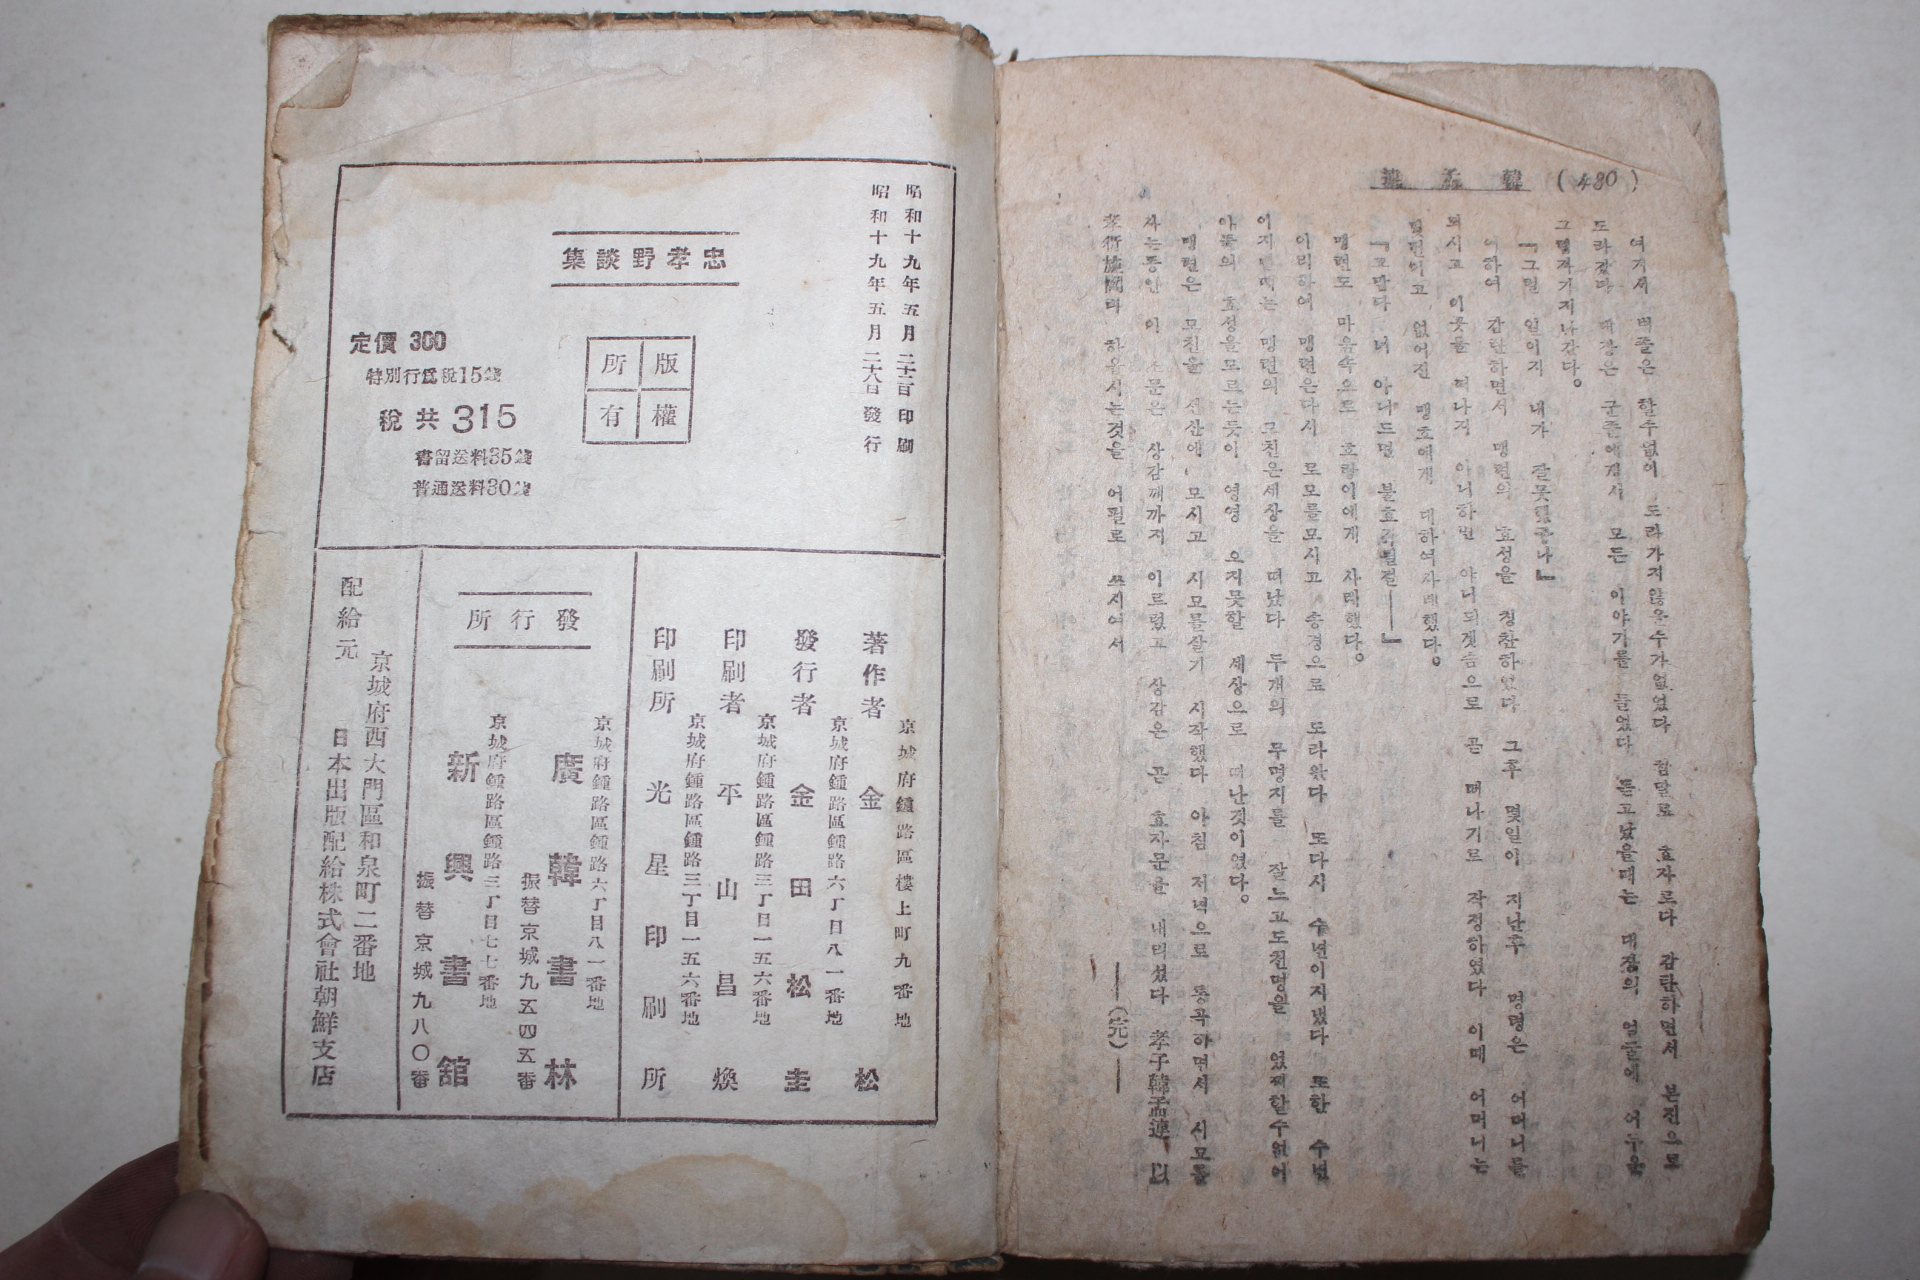 (480) 韓孟連
여기서 벼품은 할수없이 도라가지않을수가없었다 참말로 효자로다 감탄하면서 본진으로
도라갔다 대장은 군졸에게서 모든 이야기를 들었다 듣고났을때는 대장의 얼굴에 어두운
그림자가지나간다。
『그럴 일이지 내가 잘못했구나』
어하여 간탄하면서 맹련의 효성을 칭찬하였다 그후 몇일이 지난후 명령은 어머니를
뫼시고 이곳을 떠나지 아니하면 아니되겟슴으로 곧 떠나기로 작정하였다 이때 어머니는
몇번이고 없어진 맹호에게 대하여사례했다。
『고맙다 너 아니드면 불효가될걸――』
맹련도 마음속으로 호랑이에게 사례했다。
이리하여 맹련은다시 모모를모시고 송경으로 도라왔다 또다시 수년이지냈다 또한 수년
이지난때는 맹련의 모친은세상을 떠났다 두개의 무명지를 잘느고도천명을 었찌할수없어
아들의 효성을모르는듯이 영영 오지못할 세상으로 떠난것이였다。
맹련은 모친을 선산에 모시고 시묘를살기 시작했다 아침 저녁으로 통곡하면서 시묘를
사는동안 이 소문은 상감께까지 이르렀고 상감은 곧 효자문을 내리셨다 孝子韓孟連 以
孝行旌閭라 하옵시는것을 어필로 쓰시여서
――(完)――
昭和十九年五月二十三日印刷
昭和十九年五月二十八日發行
忠孝野談集
版權所有
定價 300
特別行爲稅15錢
稅共 315
書留送料35錢
普通送料30錢
京城府鍾路區樓上町九番地
著作者 金松
京城府鍾路區鍾路六丁目八一番地
發行者 金田松圭
京城府鍾路區鍾路三丁目一五六番地
印刷者 平山昌煥
京城府鍾路區鍾路三丁目一五六番地
印刷所 光星印刷所
發行所
京城府鍾路區鍾路六丁目八一番地
廣韓書林
振替京城九五四五番
京城府鍾路區鍾路三丁目七七番地
新興書舘
振替京城九八〇番
京城府西大門區和泉町二番地
配給元 日本出版配給株式會社朝鮮支店